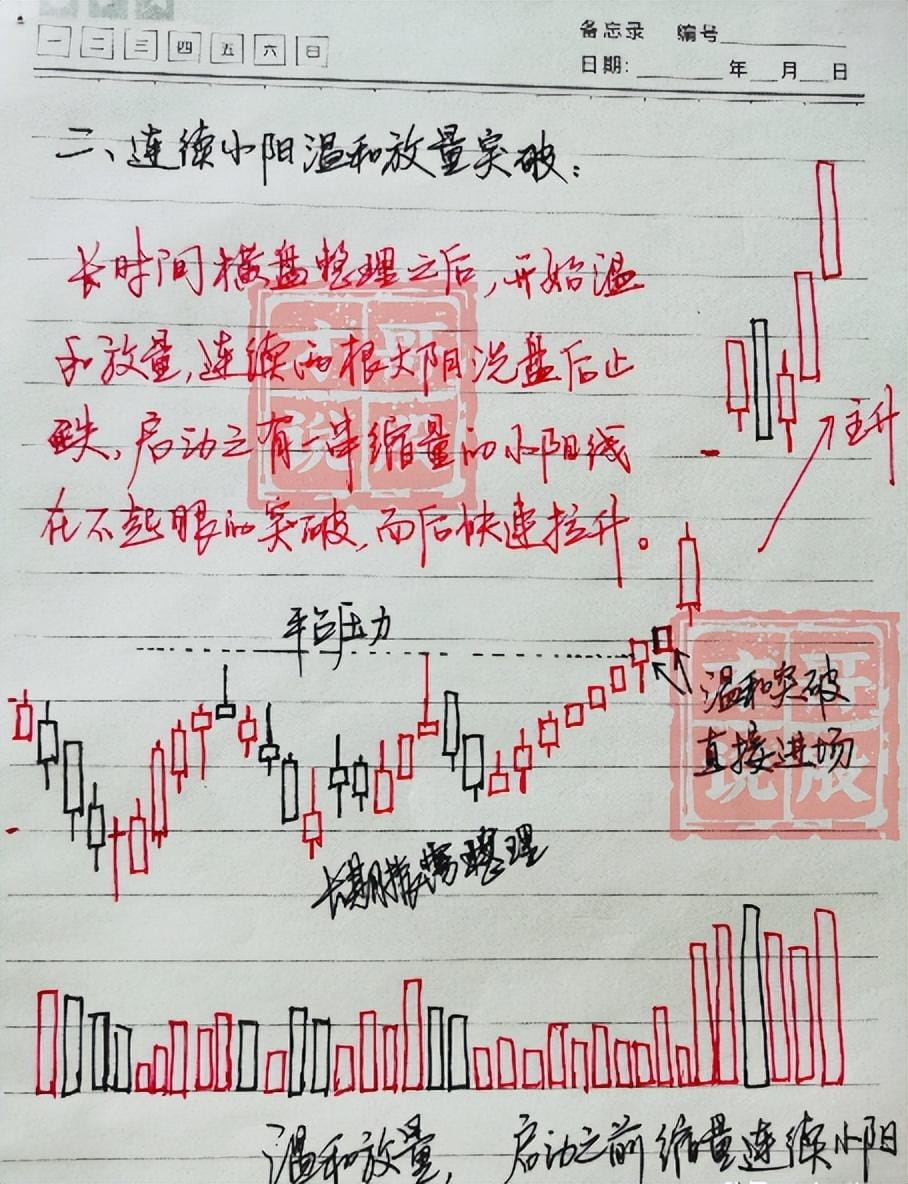 一 二 三 四 五 六 日
备忘录 编号
日期: 年 月 日
二、连续小阳温和放量突破:
长时间横盘整理之后,开始温
和放量,连续两根大阳洗盘后止
跌,启动之有一串缩量的小阳线
在不起眼的突破,而后快速拉升。
主升
平台压力
温和突破
直接进场
长期横盘整理
温和放量, 启动之前缩量连续小阳